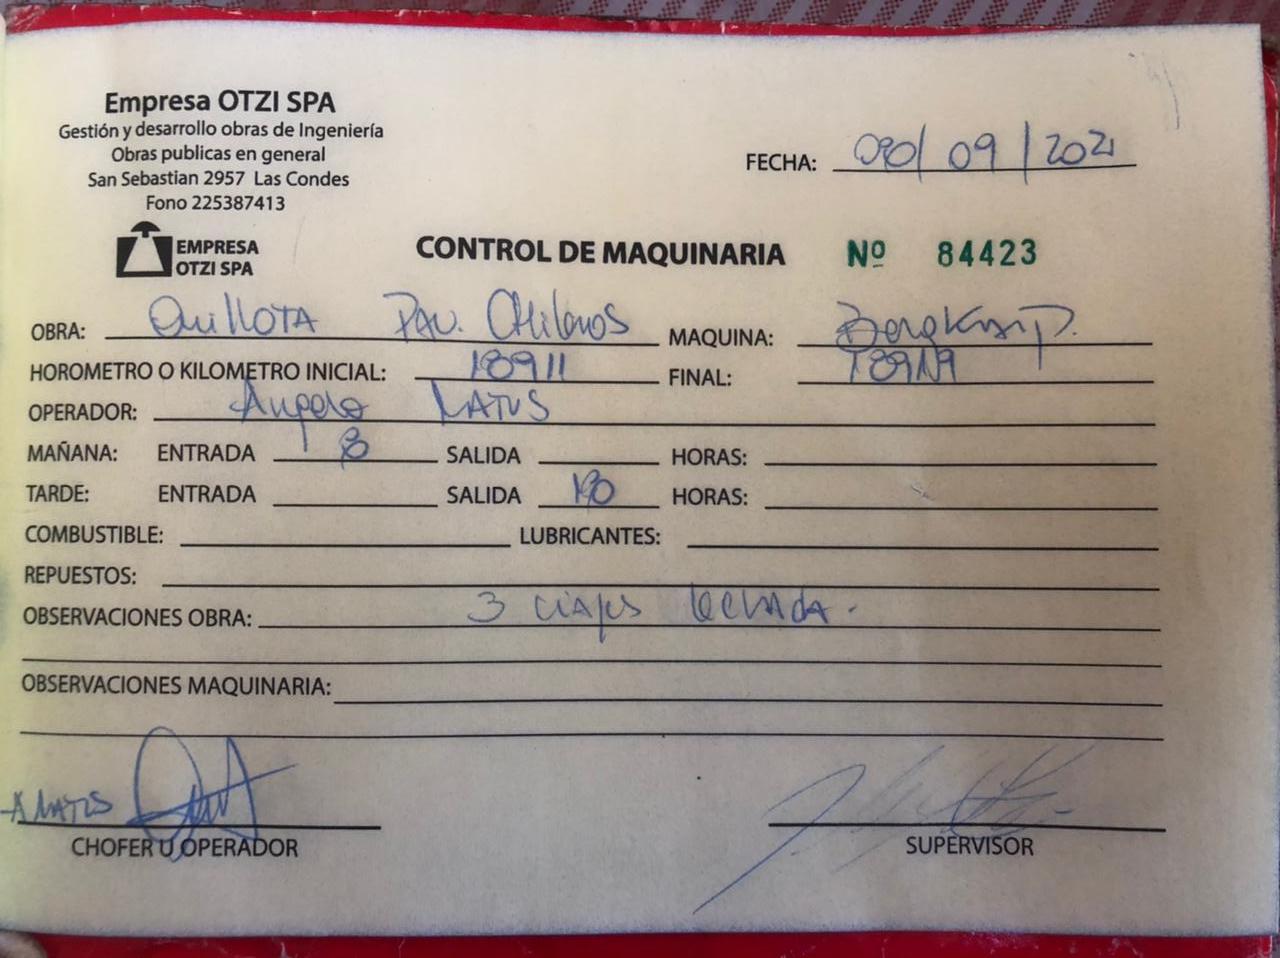 Empresa OTZI SPA
Gestión y desarrollo obras de Ingeniería
Obras publicas en general
San Sebastian 2957 Las Condes
Fono 225387413
FECHA: /09/2021
EMPRESA
OTZI SPA
CONTROL DE MAQUINARIA Nº 84423
OBRA: QuillOTA PAV. CHilenos MAQUINA: BergKamp.
HOROMETRO O KILOMETRO INICIAL: 18911 FINAL:
OPERADOR: Angelo MATUS
MAÑANA: ENTRADA 8 SALIDA HORAS:
TARDE: ENTRADA SALIDA HORAS:
COMBUSTIBLE: LUBRICANTES:
REPUESTOS:
OBSERVACIONES OBRA: 3 viajes lechada.
OBSERVACIONES MAQUINARIA:
A MATUS
CHOFER U OPERADOR SUPERVISOR